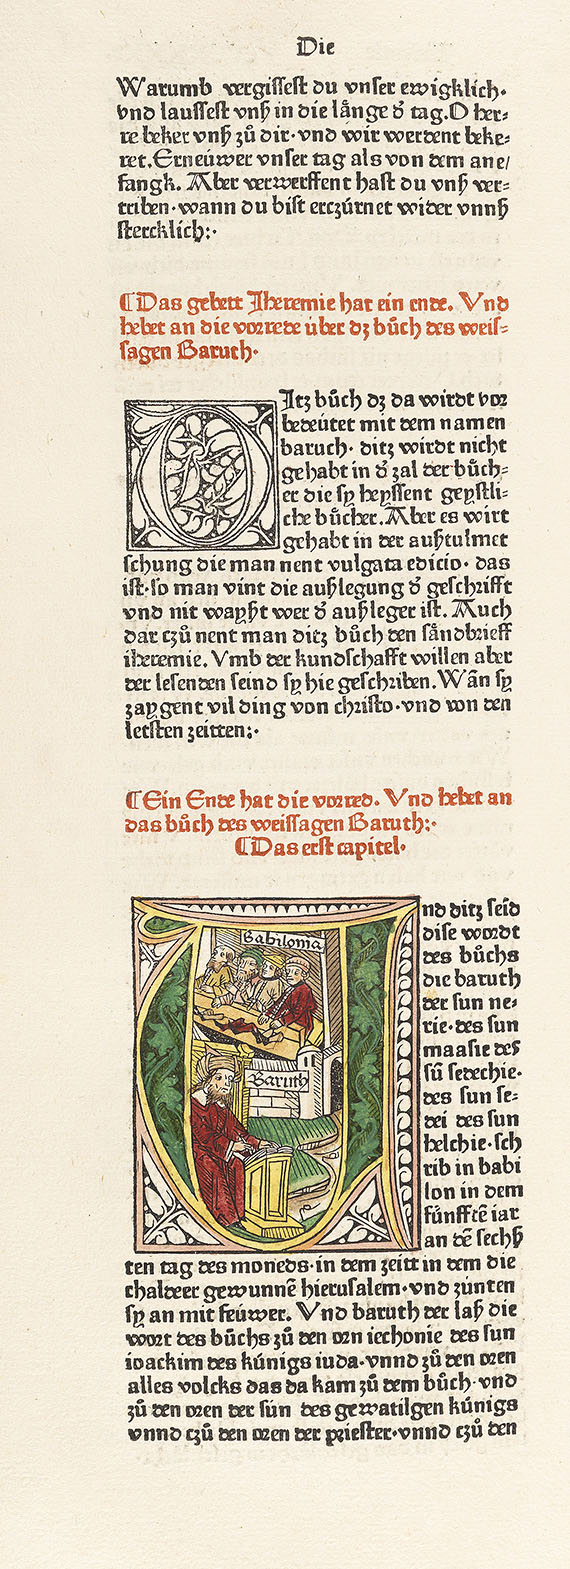 Die
Warumb vergissest du vnser ewigklich.
vnd laussest vnß in die långe d̕ tag. O her-
re beker vnß zů dir·vnd wir werdent beke-
ret. Erneúwer vnser tag als von dem ane/
fangk. Aber verwerffent hast du vnß ver-
triben·wann du bist erczúrnet wider vnnß
stercklich:·
¶Das gebett Jheremie hat ein ende. Vnd
hebet an die vorrede úber dz bůch des weis-
sagen Baruch·
Itz bůch dz da wirdt vor
bedeútet mit dem namen
baruch· ditz wirdt nicht
gehabt in d̕ zal der bůch-
er die sy heyssent geystli-
che bůcher. Aber es wirt
gehabt in der außtulmet
schung die man nent vulgata edicio· das
ist·so man vint die außlegung d̕ geschrifft
vnd nit wayßt wer d̕ außleger ist. Auch
dar czů nent man ditz bůch den såndbrieff
iheremie. Vmb der kundschafft willen aber
der lesenden seind sy hie geschriben. Wān sy
zaygent vil ding von christo·vnd von den
letsten zeitten:·
¶Ein Ende hat die vorred. Vnd hebet an
das bůch des weissagen Baruch:·
¶Das erst capitel·
Babilonia
Baruch
nd ditz seid
dise wordt
des bůchs
die baruch
der sun ne-
rie·des sun
maasie des
sū sedechie·
des sun se-
dei des sun
helchie·sch
rib in babi
lon in dem
fúnfftē iar
an dē sechß
ten tag des moneds·in dem zeitt in dem die
chaldeer gewunnē hierusalem·vnd zúnten
sy an mit feúwer. Vnd baruch der laß die
wort des bůchs zů den orn iechonie des sun
ioackim des kúnigs iuda·vnnd zů den oren
alles volcks das da kam zů dem bůch·vnd
zů den oren der sún des gewatilgen kúnigs
vnnd czů den oren der priester·vnnd czů den